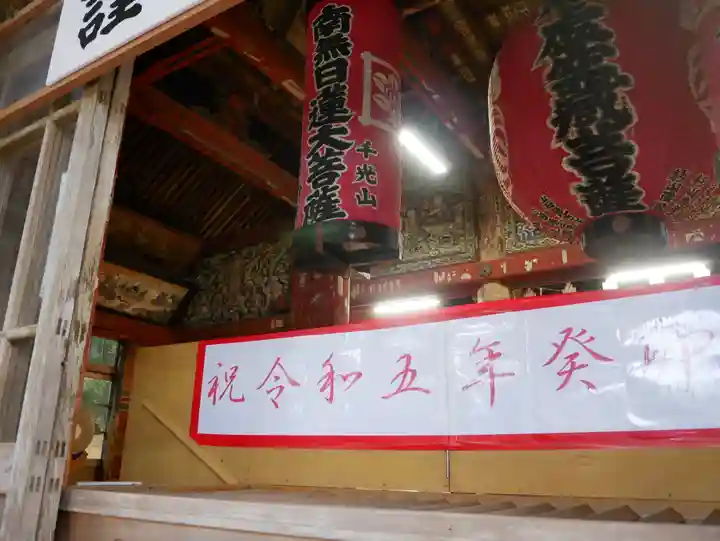 詮
南無日蓮大菩薩
千光山
菩薩
祝令和五年癸卯